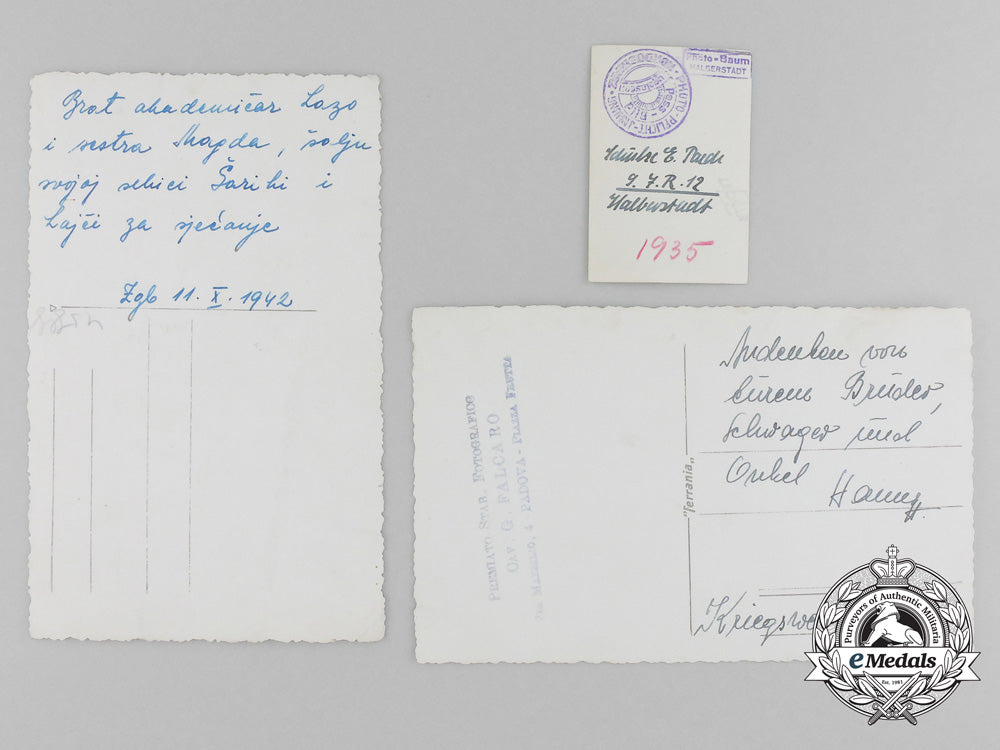 Brat akademičar Lazo
i sestra Magda, šalju
svojoj sekici Šariki i
Lajči za sjećanje
Zgb 11. X. 1942
PHOTO-PFLICHT-
Pass -
Photo-Baum
HALBERSTADT
Schütze E.
9. J.R. 12
Halberstadt
1935
PREMIATO STAB. FOTOGRAFICO
CAV. G. FALCARO
4 PADOVA - PIAZZA
"Ferrania"
Andenken von
Eurem Bruder,
Schwager und
Onkel
Purveyors of Authentic Militaria
eMedals
Est. 1981